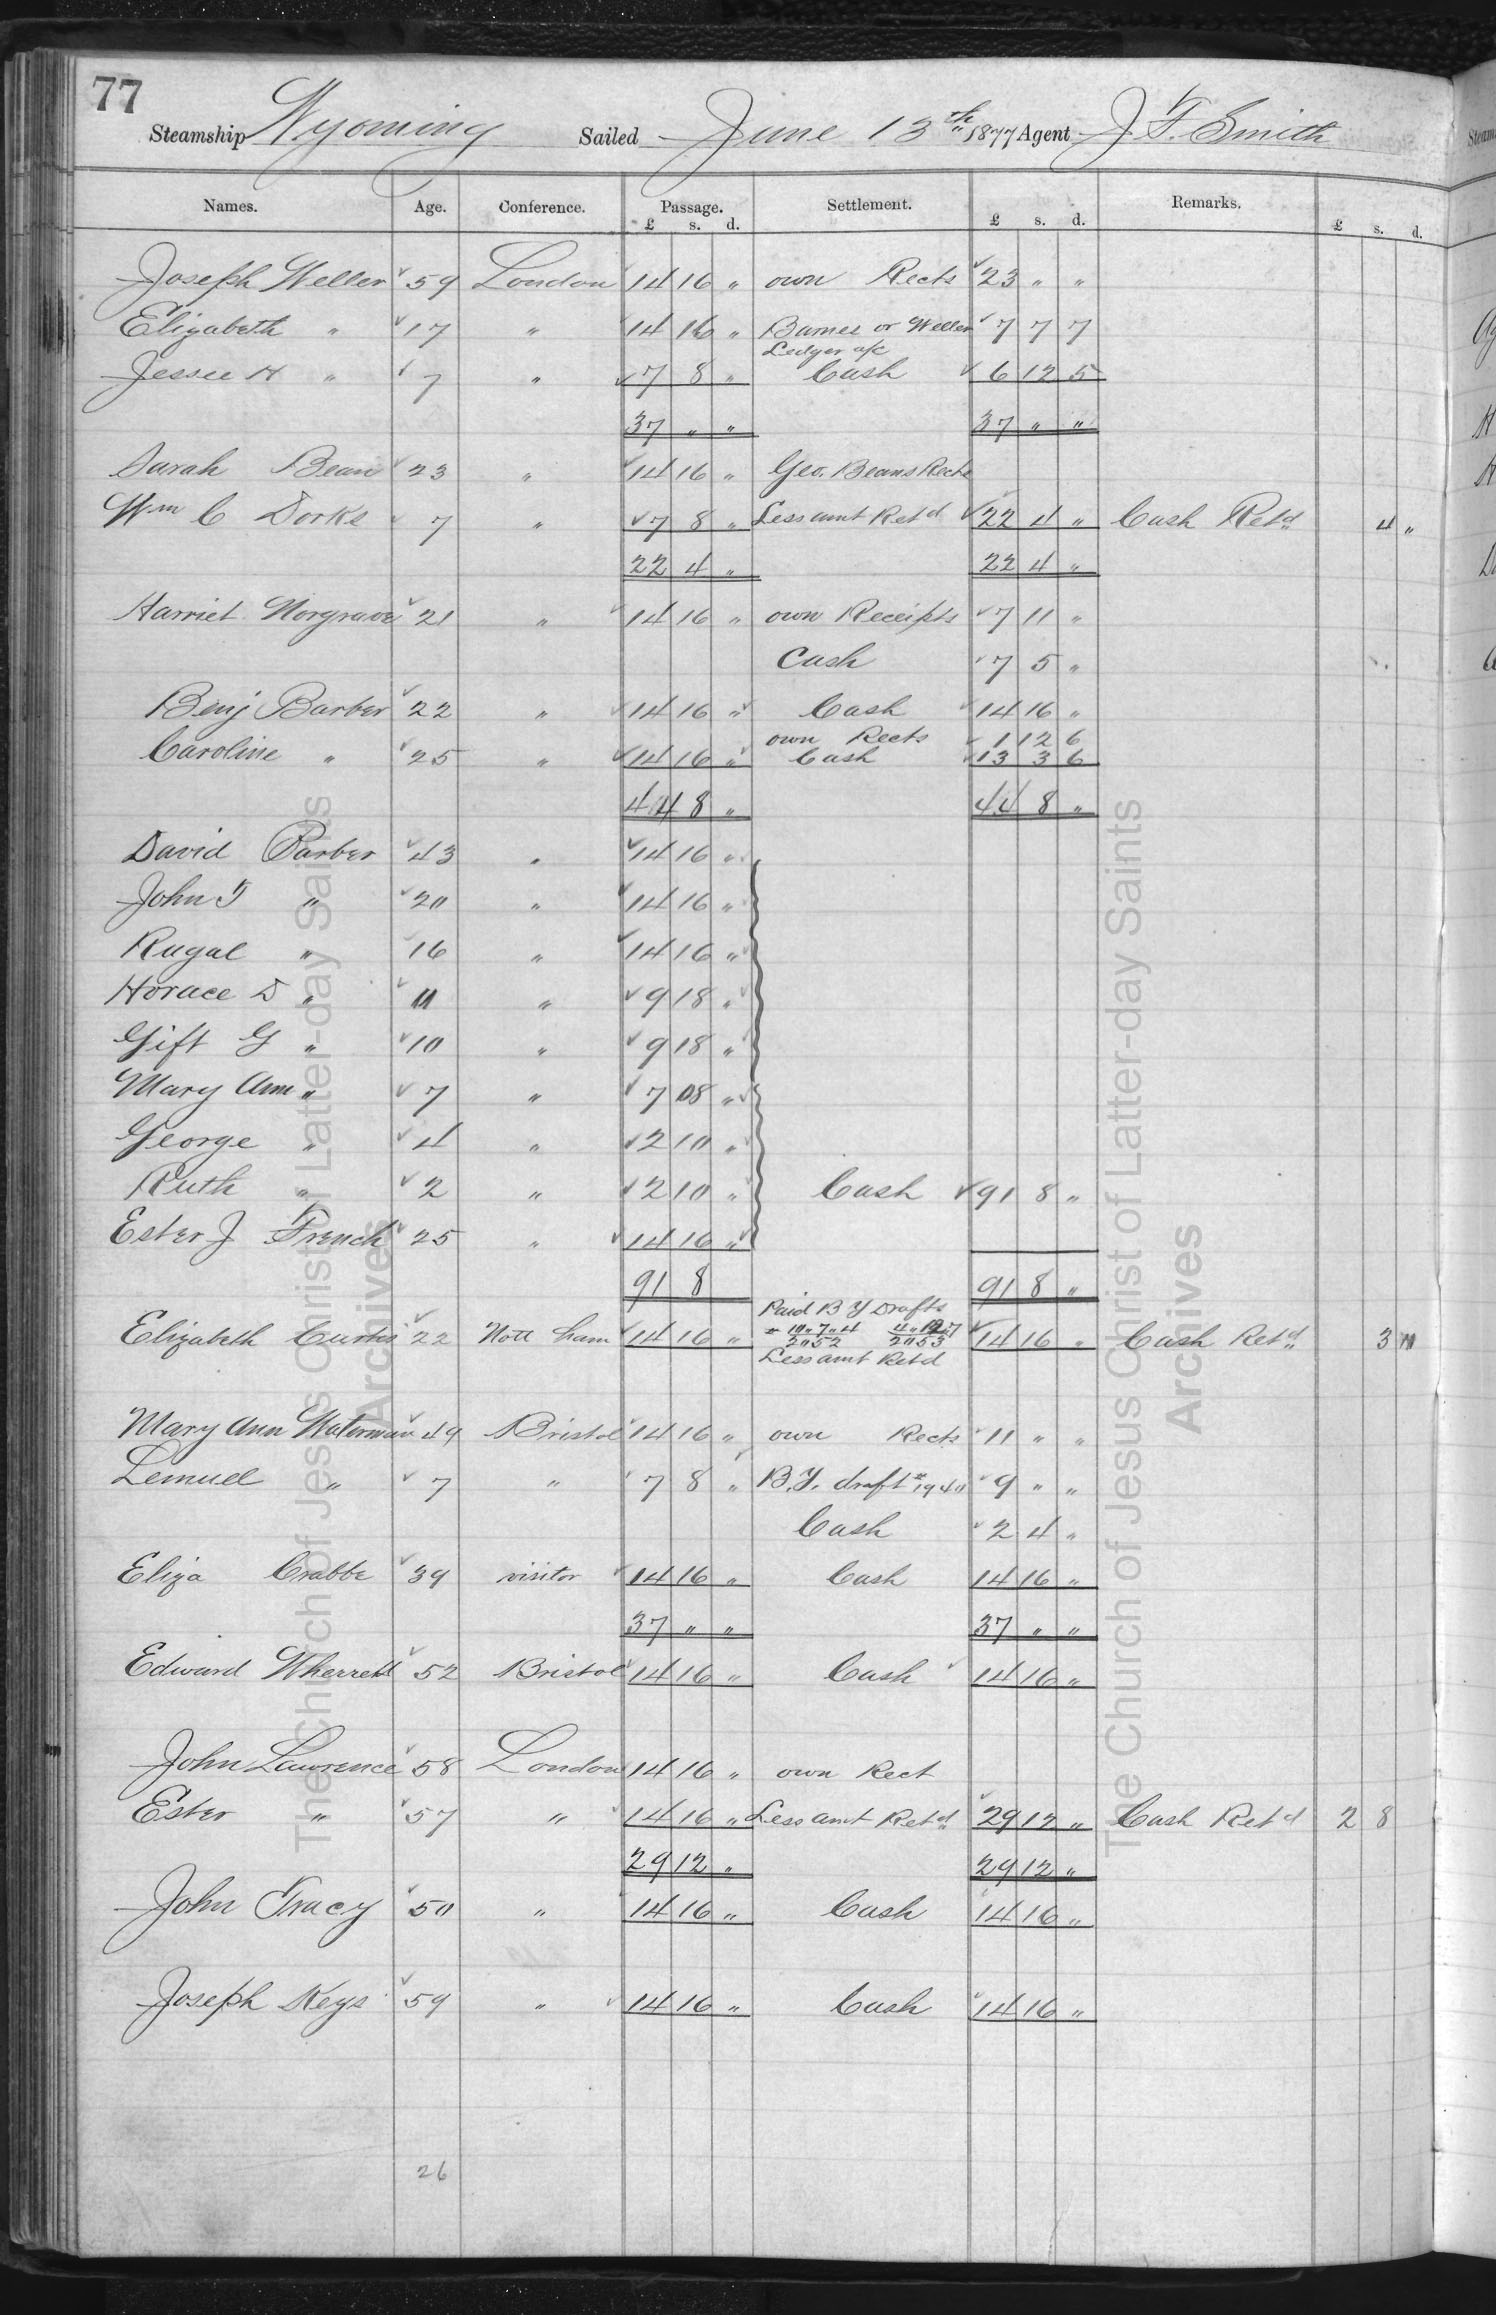 77
Steamship Wyoming Sailed June 13th 1877 Agent J. F. Smith
Names. Age. Conference. Passage. Settlement. £ s. d. Remarks. £ s. d.
£ s. d.
Joseph Weller 59 London 14 16 " own Rects 23 " "
Elizabeth " 17 " 14 16 " Barnes or Weller 7 7 7
Ledger a/c
Jessee H " 7 " 7 8 " Cash 6 12 5
37 " " 37 " "
Sarah Bean 23 " 14 16 " Geo. Beans Rects
Wm C Dorks 7 " 7 8 " Less amt Retd 22 4 " Cash Retd 4 "
22 4 " 22 4 "
Harriet Norgrave 21 " 14 16 " own Receipts 7 11 "
Cash 7 5 "
Benj Barber 22 " 14 16 " Cash 14 16 "
own Rects 1 12 6
Caroline " 25 " 14 16 " Cash 13 3 6
44 8 " 44 8 "
David Barber 43 " 14 16 "
John T " 20 " 14 16 "
Rugal " 16 " 14 16 "
Horace D " 11 " 9 18 "
Gift G " 10 " 9 18 "
Mary Ann " 7 " 7 08 "
George " 4 " 2 10 "
Ruth " 2 " 2 10 " Cash 91 8 "
Ester J French 25 " 14 16 "
91 8 91 8 "
Paid B Y Drafts
Elizabeth Curtis 22 Nott ham 14 16 " 14 16 " Cash Retd 3
Less amt Retd
Mary Ann Waterman 49 Bristol 14 16 " own Rects 11 " "
Lemuel " 7 " 7 8 " B.Y. draft # 1940 9 " "
Cash 2 4 "
Eliza Crabbe 39 visitor 14 16 " Cash 14 16 "
37 " " 37 " "
Edward Wherrett 52 Bristol 14 16 " Cash 14 16 "
John Lawrence 58 London 14 16 " own Rect
Ester " 57 " 14 16 " Less amt Retd 29 12 " Cash Retd 2 8
29 12 " 29 12 "
John Tracy 50 " 14 16 " Cash 14 16 "
Joseph Keys 59 " 14 16 " Cash 14 16 "
26
The Church of Jesus Christ of Latter-day Saints
Archives
The Church of Jesus Christ of Latter-day Saints
Archives